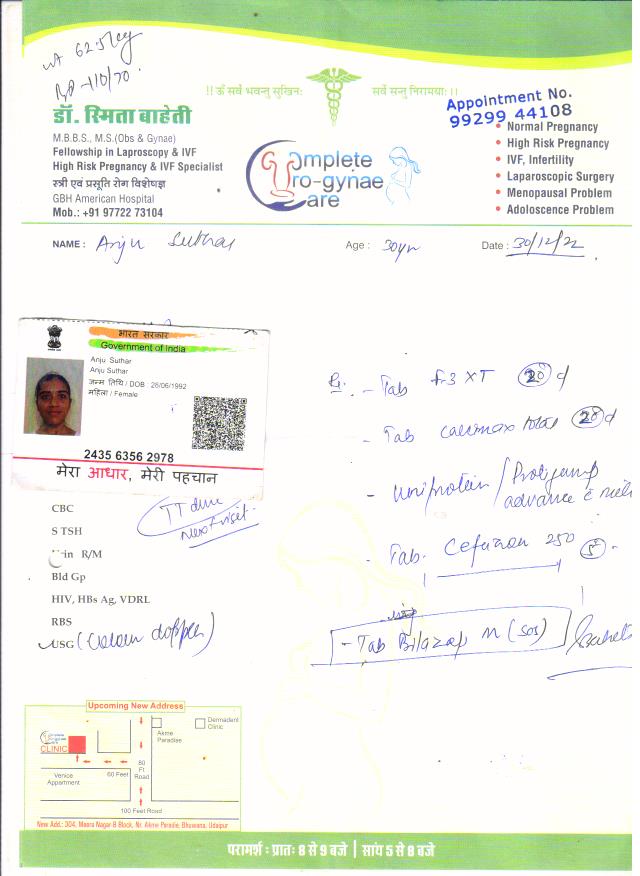 wt 62.5 kg
BP - 110/70
!! ॐ सर्वे भवन्तु सुखिनः सर्वे सन्तु निरामयाः !!
Appointment No.
99299 44108
डॉ. स्मिता बाहेती
M.B.B.S., M.S.(Obs & Gynae)
Fellowship in Laproscopy & IVF
High Risk Pregnancy & IVF Specialist
स्त्री एवं प्रसूति रोग विशेषज्ञ
GBH American Hospital
Mob.: +91 97722 73104
Complete
Uro-gynae
Care
• Normal Pregnancy
• High Risk Pregnancy
• IVF, Infertility
• Laparoscopic Surgery
• Menopausal Problem
• Adoloscence Problem
NAME : Anju Suthar Age : 30yr Date : 30/12/22
भारत सरकार
Government of India
Anju Suthar
Anju Suthar
जन्म तिथि / DOB : 28/06/1992
महिला / Female
2435 6356 2978
मेरा आधार, मेरी पहचान
- Tab 20 d
- Tab calcimax total 20 d
- uniprotein /
advance
- Tab. 250 5
- Tab Bilazap M (SOS)
TT due
next visit
CBC
S TSH
R/M
Bld Gp
HIV, HBs Ag, VDRL
RBS
USG (Colour doppler)
Upcoming New Address
CLINIC
Akme
Paradise
Dermadent
Clinic
80
Ft
Road
Venice
Appartment
60 Feet
100 Feet Road
New Add.: 304, Meera Nagar B Block, Nr. Akme Paradie, Bhuwana, Udaipur
परामर्श : प्रातः 8 से 9 बजे | सांय 5 से 8 बजे